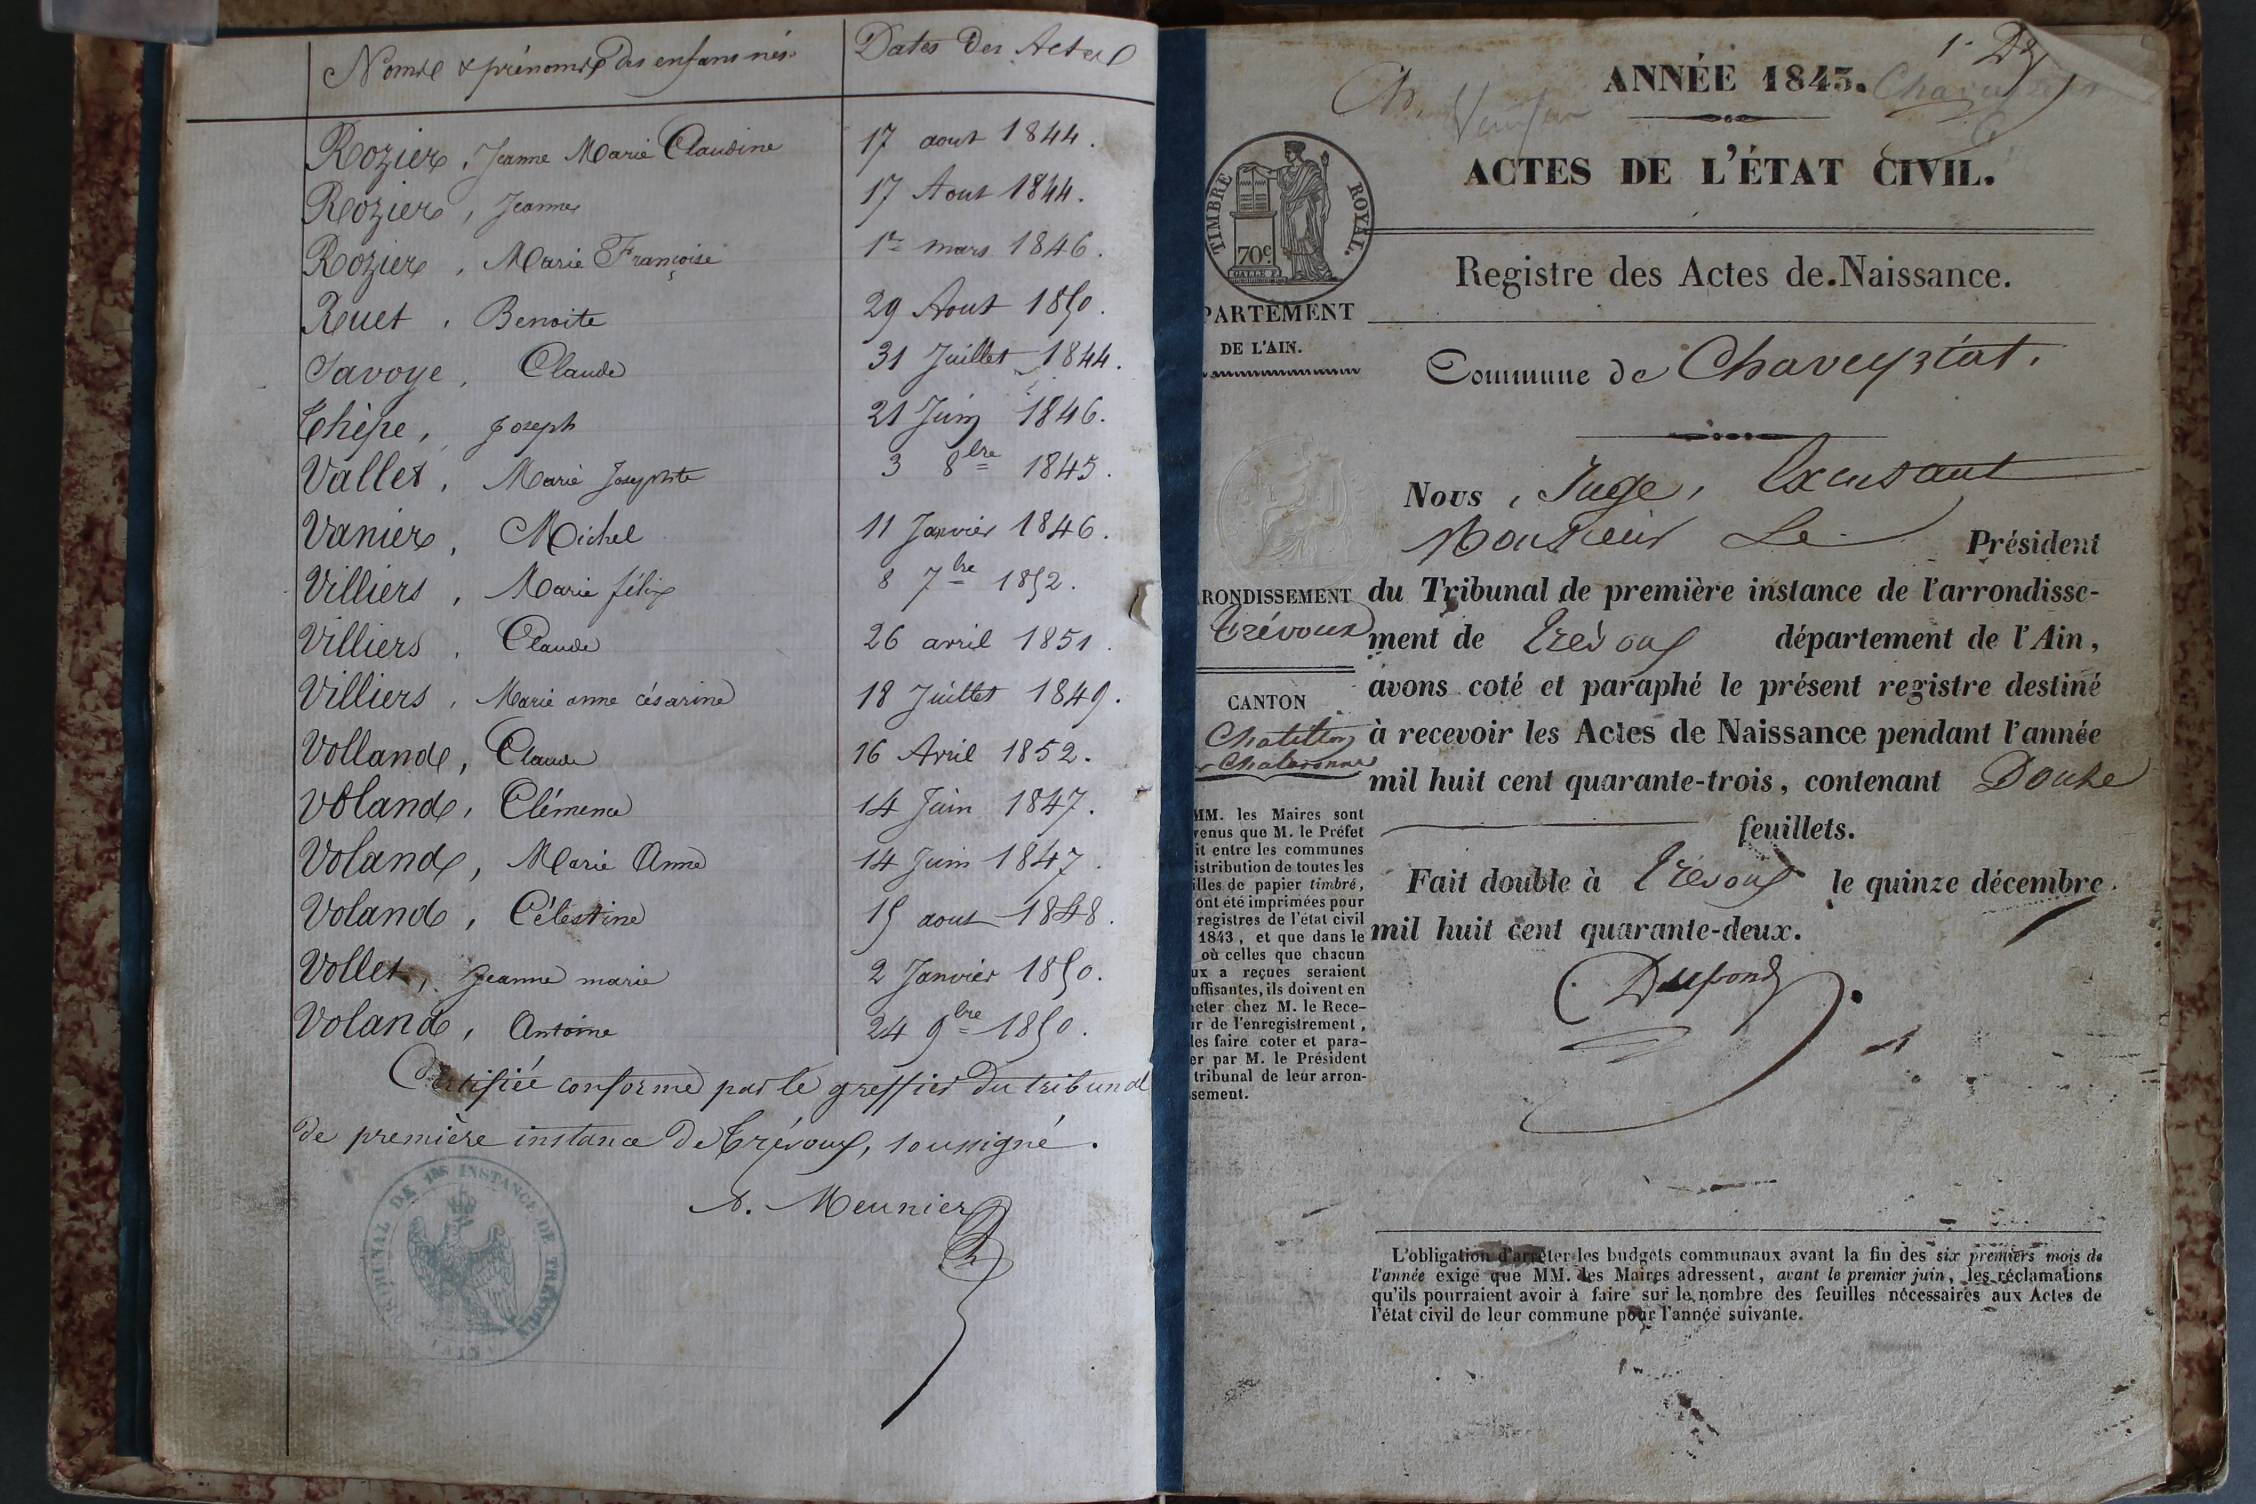 Noms & prénoms des enfans nés
Dates des Actes
Rozier, Jeanne Marie Claudine 17 aout 1844.
Rozier, Jeanne 17 Aout 1844.
Rozier, Marie Françoise 1er mars 1846.
Ruet, Benoite 29 Aout 1850.
Savoye, Claude 31 Juillet 1844.
Thèpe, Joseph 21 Juin 1846.
Vallet, Marie Josephte 3 8bre 1845.
Vanier, Michel 11 Janvier 1846.
Villiers, Marie félix 8 7bre 1852.
Villiers, Claude 26 avril 1851.
Villiers, Marie anne césarine 18 Juillet 1849.
Volland, Claude 16 Avril 1852.
Voland, Clémence 14 Juin 1847.
Voland, Marie Anne 14 Juin 1847.
Voland, Célestine 15 aout 1848.
Vollet, Jeanne marie 2 Janvier 1850.
Voland, Antoine 24 9bre 1850.
Certifiée conforme par le greffier du tribunal
de première instance de Trévoux, soussigné.
A. Meunier
TRIBUNAL DE 1RE INSTANCE DE TRÉVOUX
(AIN)
ANNÉE 1843.
ACTES DE L'ÉTAT CIVIL.
TIMBRE ROYAL.
70c
Registre des Actes de Naissance.
PARTEMENT
DE L'AIN.
Commune de Chaveyriat.
Nous, Juge, Excusant
Monsieur Le Président
du Tribunal de première instance de l'arrondisse-
ment de Trévoux département de l'Ain,
avons coté et paraphé le présent registre destiné
à recevoir les Actes de Naissance pendant l'année
mil huit cent quarante-trois, contenant Douze
feuillets.
Fait double à Trévoux le quinze décembre
mil huit cent quarante-deux.
Dupond
RONDISSEMENT
Trévoux
CANTON
Chatillon
Chalaronne
MM. les Maires sont
venus que M. le Préfet
it entre les communes
istribution de toutes les
illes de papier timbré,
ont été imprimées pour
registres de l'état civil
1843, et que dans le
où celles que chacun
ux a reçues seraient
uffisantes, ils doivent en
heter chez M. le Rece-
r de l'enregistrement,
les faire coter et para-
er par M. le Président
tribunal de leur arron-
sement.
L'obligation d'arrêter les budgets communaux avant la fin des six premiers mois de
l'année exige que MM. les Maires adressent, avant le premier juin, les réclamations
qu'ils pourraient avoir à faire sur le nombre des feuilles nécessaires aux Actes de
l'état civil de leur commune pour l'année suivante.